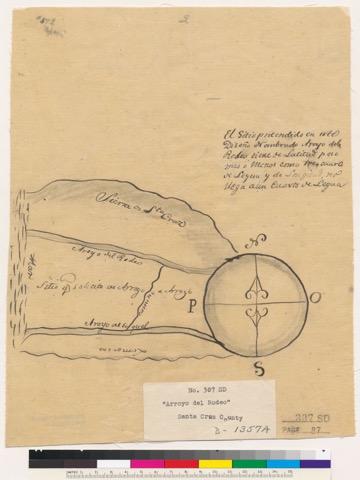 2
El Sitio pretendido en este
Diseño Nombrado Arroyo del
Rodeo tiene de Latitud poco
mas o menos como tres cuartos
de Legua y de Longitud, no
llega a un Cuarto de Legua
Sierra de Sta Cruz
N
Arroyo del Rodeo
Mar
Sitio q. solicita de Arroyo a Arroyo
Camino
P
O
Arroyo del
Lomerias
S
No. 307 SD
"Arroyo del Rodeo"
Santa Cruz County
B-1357A
337 SD
PAGE 87